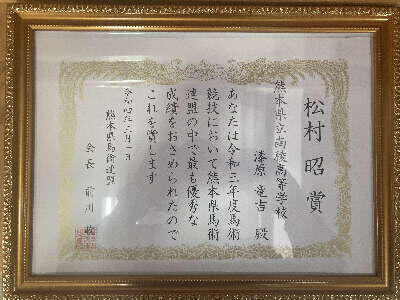 松村昭賞
熊本県立南稜高等学校
漆原 竜吉 殿
あなたは令和三年度馬術
競技において熊本県馬術
連盟の中で最も優秀な
成績をおさめられたので
これを賞します
令和四年三月一日
熊本県馬術連盟
会長 前川 收